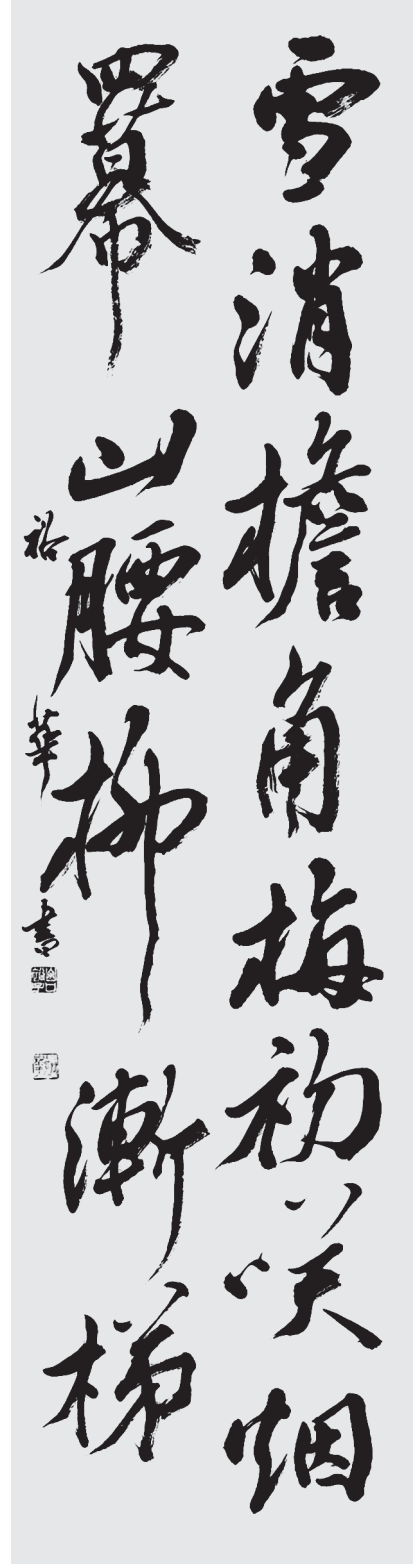 雪消檐角梅初咲烟
羃山腰柳漸梯
裕華書